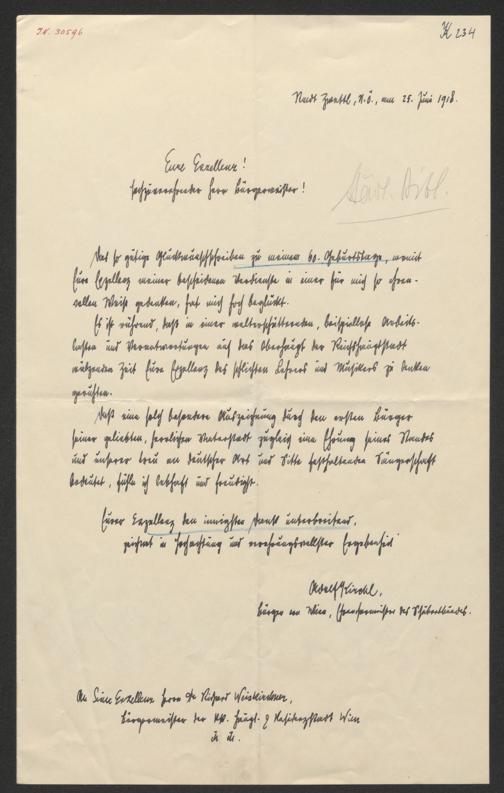 I.N. 30596
K 234
Stadt Zwettl, N.Ö., am 25. Juni 1918.
Eure Exzellenz!
Hochzuverehrender Herr Bürgermeister!
Städt. Bibl.
Das so gütige Glückwunschschreiben zu meinem 60. Geburtstage, womit
Eure Exzellenz meiner bescheidenen Verdienste in einer für mich so ehren-
vollen Weise gedenken, hat mich hoch beglückt.
Es ist rührend, daß in einer welterschütternden, beispiellose Arbeits-
lasten und Verantwortungen auf das Oberhaupt der Reichshauptstadt
wälzenden Zeit Eure Exzellenz des schlichten Lehrers und Musikers zu denken
geruhten.
Daß eine solch besondere Auszeichnung durch den ersten Bürger
seiner geliebten, herrlichen Vaterstadt zugleich eine Ehrung seines Standes
und unserer treu an deutscher Art und Sitte festhaltenden Sängerschaft
bedeutet, fühle ich lebhaft und freudigst.
Eurer Exzellenz den innigsten Dank unterbreitend,
zeichnet in Hochachtung und verehrungsvollster Ergebenheit
Adolf Kirchl,
Bürger von Wien, Ehrenchormeister des Schubertbundes.
An Seine Exzellenz Herrn Dr Richard Weiskirchner,
Bürgermeister der k.k. Haupt- & Residenzstadt Wien